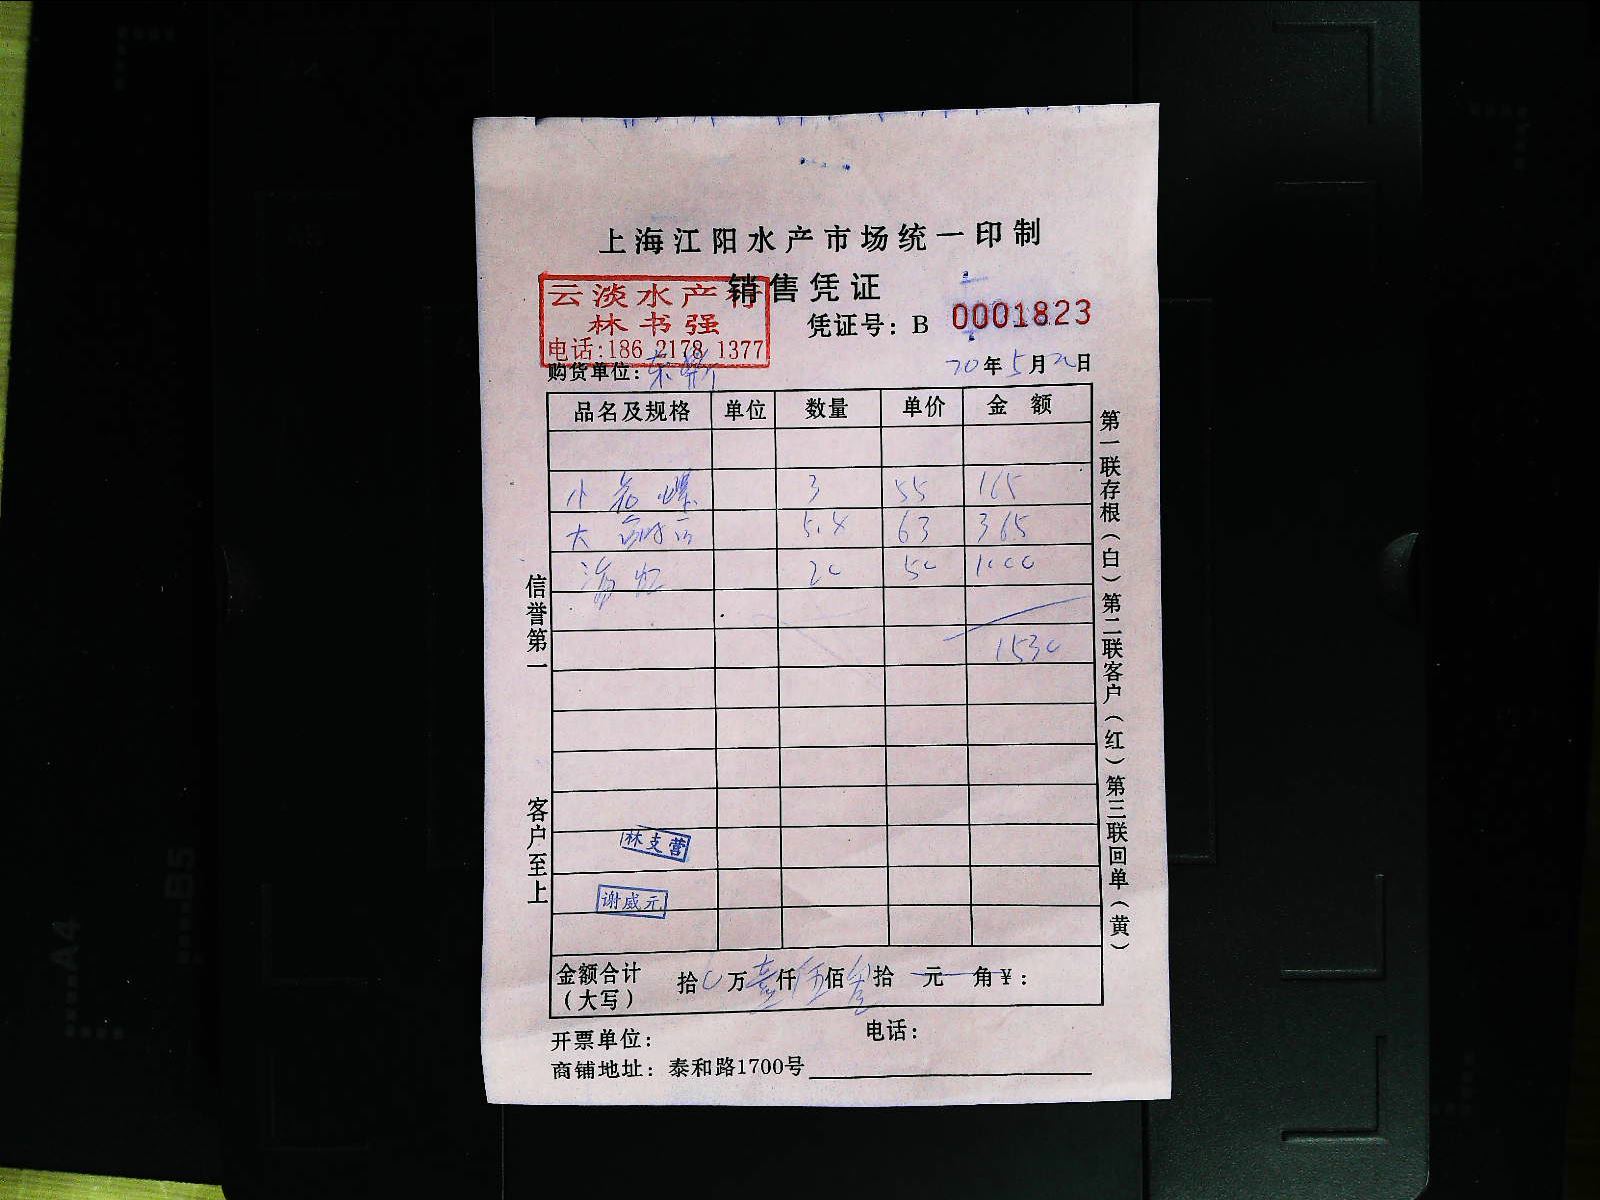 上海江阳水产市场统一印制
销售凭证
云淡水产行
林书强
电话:186 2178 1377
凭证号：B 0001823
购货单位：
20年5月20日
品名及规格 单位 数量 单价 金额
小花螺 3 55 165
大 5.8 63 365
海虹 20 50 1000
1530
林支营
谢威元
金额合计（大写） 拾0万壹仟伍佰叁拾 元 角¥：
开票单位： 电话：
商铺地址：泰和路1700号
信誉第一 客户至上
第一联存根（白）第二联客户（红）第三联回单（黄）